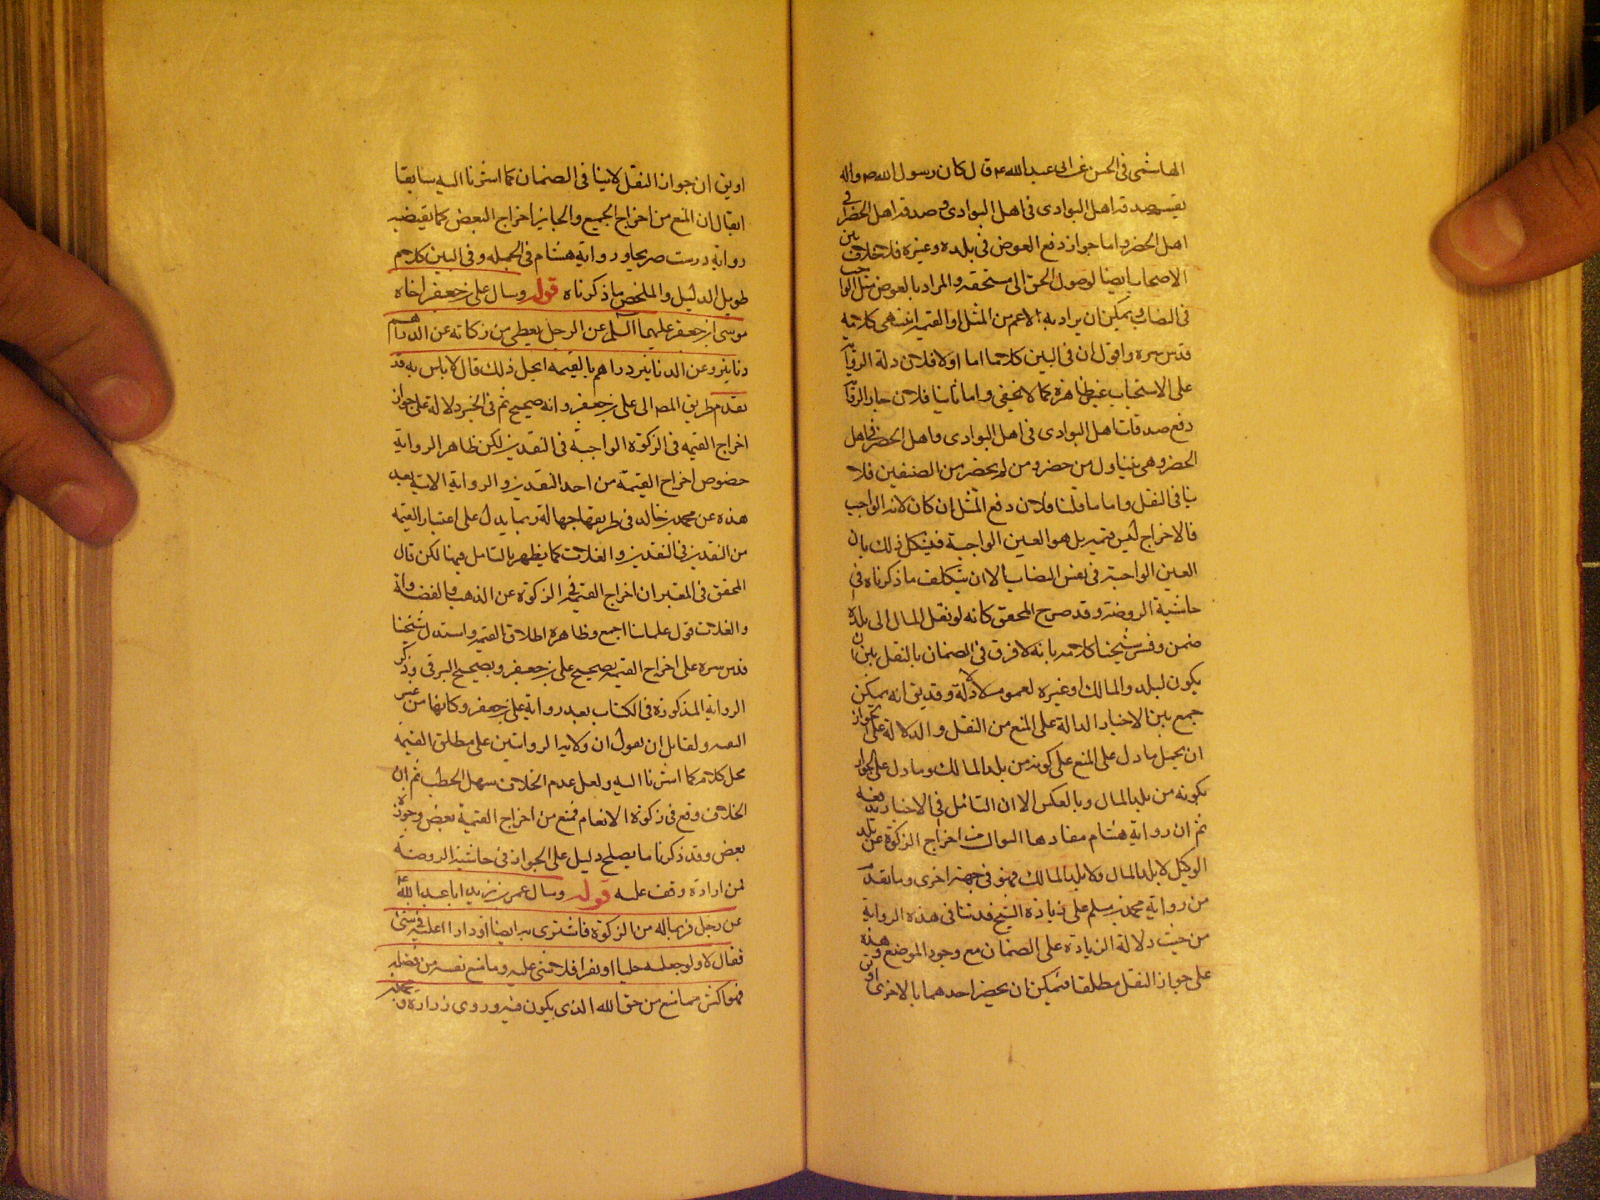 الهاشمى فى الحسن عن ابى عبدالله ع قال كان رسول الله ص واله
يقسم صدقة اهل البوادى فى اهل البوادى وصدقة اهل الحضر فى
اهل الحضر واما جواز دفع العوض فى بلده وغيره فلا خلاف بين
الاصحاب ايضا لوصول الحق الى مستحقه والمراد بالعوض مثل الواجب
فى النصاب ويمكن ان يراد به الاعم من المثل او القيمة انتهى كلامه
قدس سره واقول ان فى البين كلاما اما اولا فلان دلالة الرواية
على الاستحباب غير ظاهرة كما لا يخفى واما ثانيا فلان
دفع صدقات اهل البوادى فى اهل البوادى واهل الحضر فى اهل
الحضر وهى يتناول من حضر ومن لم يحضر من الصنفين فلا
ينافى النقل واما ما قلنا فلان دفع المثل ان كان لانه الواجب
فالاخراج ليس قيمة بل هو العين الواجبة فيشكل ذلك بان
العين الواجبة فى نفس النصاب الا ان يتكلف ما ذكرناه فى
حاشية الروضة وقد صرح المحقق كانه لو نقل المال الى بلده
ضمن وفسر شيخنا كلامه بانه لا فرق فى الضمان بالنقل بين ان
يكون لبلد المالك او غيره لعموم الادلة وقد يق انه يمكن
جمع بين الاخبار الدالة على المنع من النقل والدلالة على الجواز
ان يحمل ما دل على المنع على كونه من بلد المالك وما دل على الجواز
بكونه من بلد المال وبالعكس الا ان التامل فى الاخبار يدفعه
ثم ان رواية هشام مفادها السؤال عن اخراج الزكوة عن بلد
الوكيل لا بلد المال ولا بلد المالك فهو فى جهة اخرى وما تقدم
من رواية محمد بن مسلم على زيادة الشيخ قدتنافى هذه الرواية
من حيث دلالة الزيادة على الضمان مع وجود الموضع وهذه
على جواز النقل مطلقا فيمكن ان يحضر احدهما بالاخرى
او يق ان جواز النقل لا ينافى الضمان كما اشرنا اليه سابقا
او يقال ان المنع من اخراج الجميع والجايز اخراج البعض كما يقتضيه
رواية درست صريحا ورواية هشام فى الجمله وفى البين كلام
طويل الدليل والملخص ما ذكرناه قوله وسال على بن جعفر اخاه
موسى بن جعفر عليهما السلم عن الرجل يعطى من زكاته عن الدراهم
دنانير وعن الدنانير دراهم بالقيمه ايحل ذلك قال لا باس به قد
تقدم طريق المص الى على بن جعفر وانه صحيح ثم فى الخبر دلالة على جواز
اخراج القيمه فى الزكوة الواجبة فى النقدين لكن ظاهر الرواية
خصوص اخراج القيمة من احد النقدين والرواية الاتية بعد
هذه عن محمد بن خالد فى طريقها جهالة وبما يدل على اعتبار القيمه
من النقدين فى النقدين والغلات كما يظهر بالتامل فيها لكن قال
المحقق فى المعتبر ان اخراج القيمة فى الزكوة عن الذهب والفضة
والغلات قول علمائنا اجمع وظاهره اطلاق القيمة واستدل شيخنا
قدس سره على اخراج القيمة بصحيح على بن جعفر وبصحيح البرقى وذكر
الرواية المذكورة فى الكتاب بعد رواية على بن جعفر وكانها من غير
ولقايل ان يقول ان دلالة الروايتين على مطلق القيمة
محل كلام كما اشرنا اليه ولعل عدم الخلاف سهل الخطب ثم ان
الخلاف وقع فى زكوة الانعام فمنع من اخراج القيمة بعض وجوزه
بعض وقد ذكرنا ما يصلح دليل على الجواز فى حاشية الروضة
لمن اراده وقف عليه قوله وسال عمر بن يزيد ابا عبد الله ع
عن رجل فر بماله من الزكوة فاشترى به ارضا او دارا اعليه فيه شئ
فقال لا ولو جعله حليا او نقرا فلا شئ عليه وما منع نفسه من فضله
فهو اكثر مما منع من حق الله الذى يكون فيه وروى زرارة